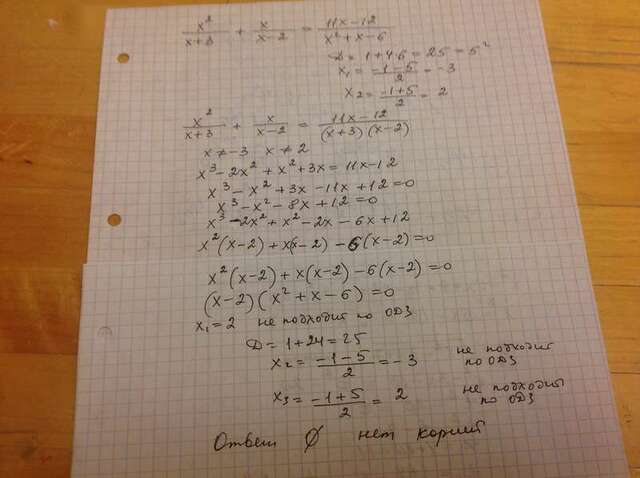 x²/(x+3) + x/(x-2) = (11x-12)/(x²+x-6)
D = 1+4·6 = 25 = 5²
x₁ = (-1-5)/2 = -3
x₂ = (-1+5)/2 = 2
x²/(x+3) + x/(x-2) = (11x-12)/((x+3)(x-2))
x ≠ -3 x ≠ 2
x³-2x²+x²+3x = 11x-12
x³-x²+3x-11x+12=0
x³-x²-8x+12=0
x³-2x²+x²-2x-6x+12
x²(x-2)+x(x-2)-6(x-2)=0
x²(x-2)+x(x-2)-6(x-2)=0
(x-2)(x²+x-6)=0
x₁=2 не подходит по ОДЗ
D = 1+24=25
x₂ = (-1-5)/2 = -3 не подходит по ОДЗ
x₃ = (-1+5)/2 = 2 не подходит по ОДЗ
Ответ ∅ нет корний